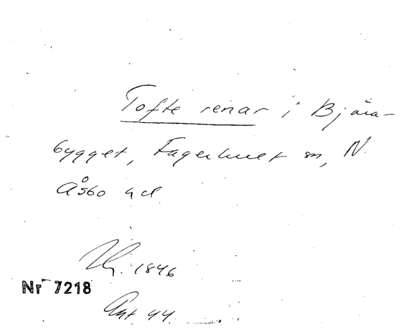 Tofte renar i Bjära-
bygget, Fagerhult sn, N.
Åsbo hd
1846
Nr 7218
Ant 44